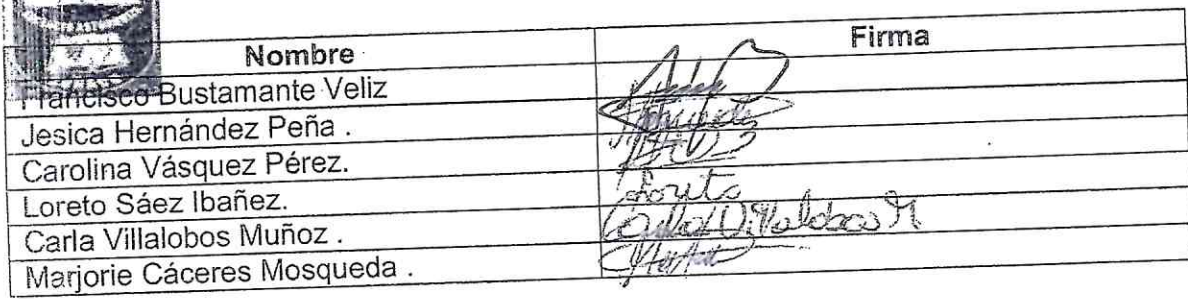 Nombre Firma
Francisco Bustamante Veliz
Jesica Hernández Peña .
Carolina Vásquez Pérez.
Loreto Sáez Ibañez. Lorito
Carla Villalobos Muñoz . Carla Villalobos M
Marjorie Cáceres Mosqueda .